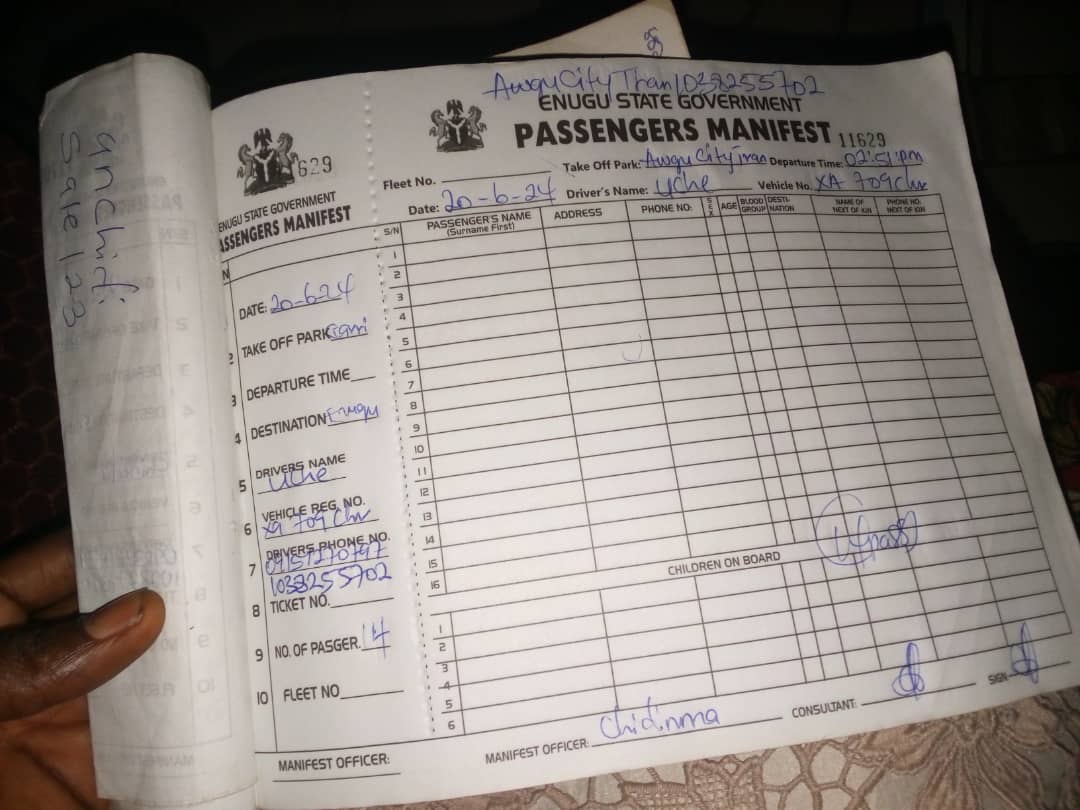 Awgu City Tran 1038255702
ENUGU STATE GOVERNMENT
PASSENGERS MANIFEST 11629
Take Off Park: Awgu City Tran Departure Time: 02:51:pm
Fleet No.
Date: 20-6-24 Driver's Name: Uche Vehicle No. XA 709 Chr
S/N PASSENGER'S NAME (Surname First) ADDRESS PHONE NO: SEX AGE BLOOD GROUP DESTI-NATION NAME OF NEXT OF KIN PHONE NO. NEXT OF KIN
1
2
3
4
5
6
7
8
9
10
11
12
13
14
15
16
CHILDREN ON BOARD
1
2
3
4
5
6
MANIFEST OFFICER: Chidinma CONSULTANT: SIGN
629
ENUGU STATE GOVERNMENT
ASSENGERS MANIFEST
N
DATE: 20-6-24
2 TAKE OFF PARK
3 DEPARTURE TIME
4 DESTINATION Enugu
5 DRIVERS NAME
Uche
6 VEHICLE REG. NO.
XA 709 Chr
7 DRIVERS PHONE NO.
09157270797
1038255702
8 TICKET NO.
9 NO. OF PASGER. 14
10 FLEET NO
MANIFEST OFFICER:
Sale 123